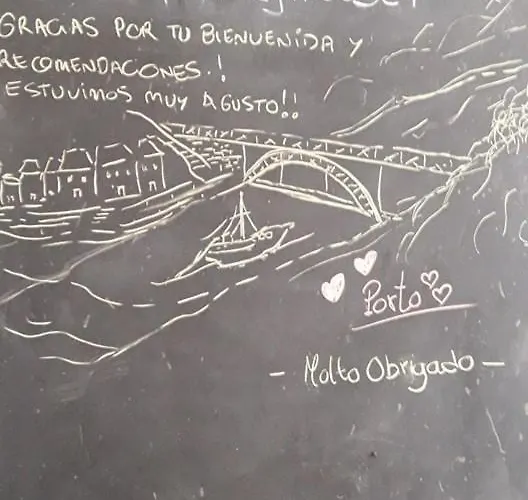 GRACIAS POR TU BIENVENIDA Y
RECOMENDACONES.!
ESTUVIMOS MUY AGUSTO!!
Porto
- Molto Obrigado -